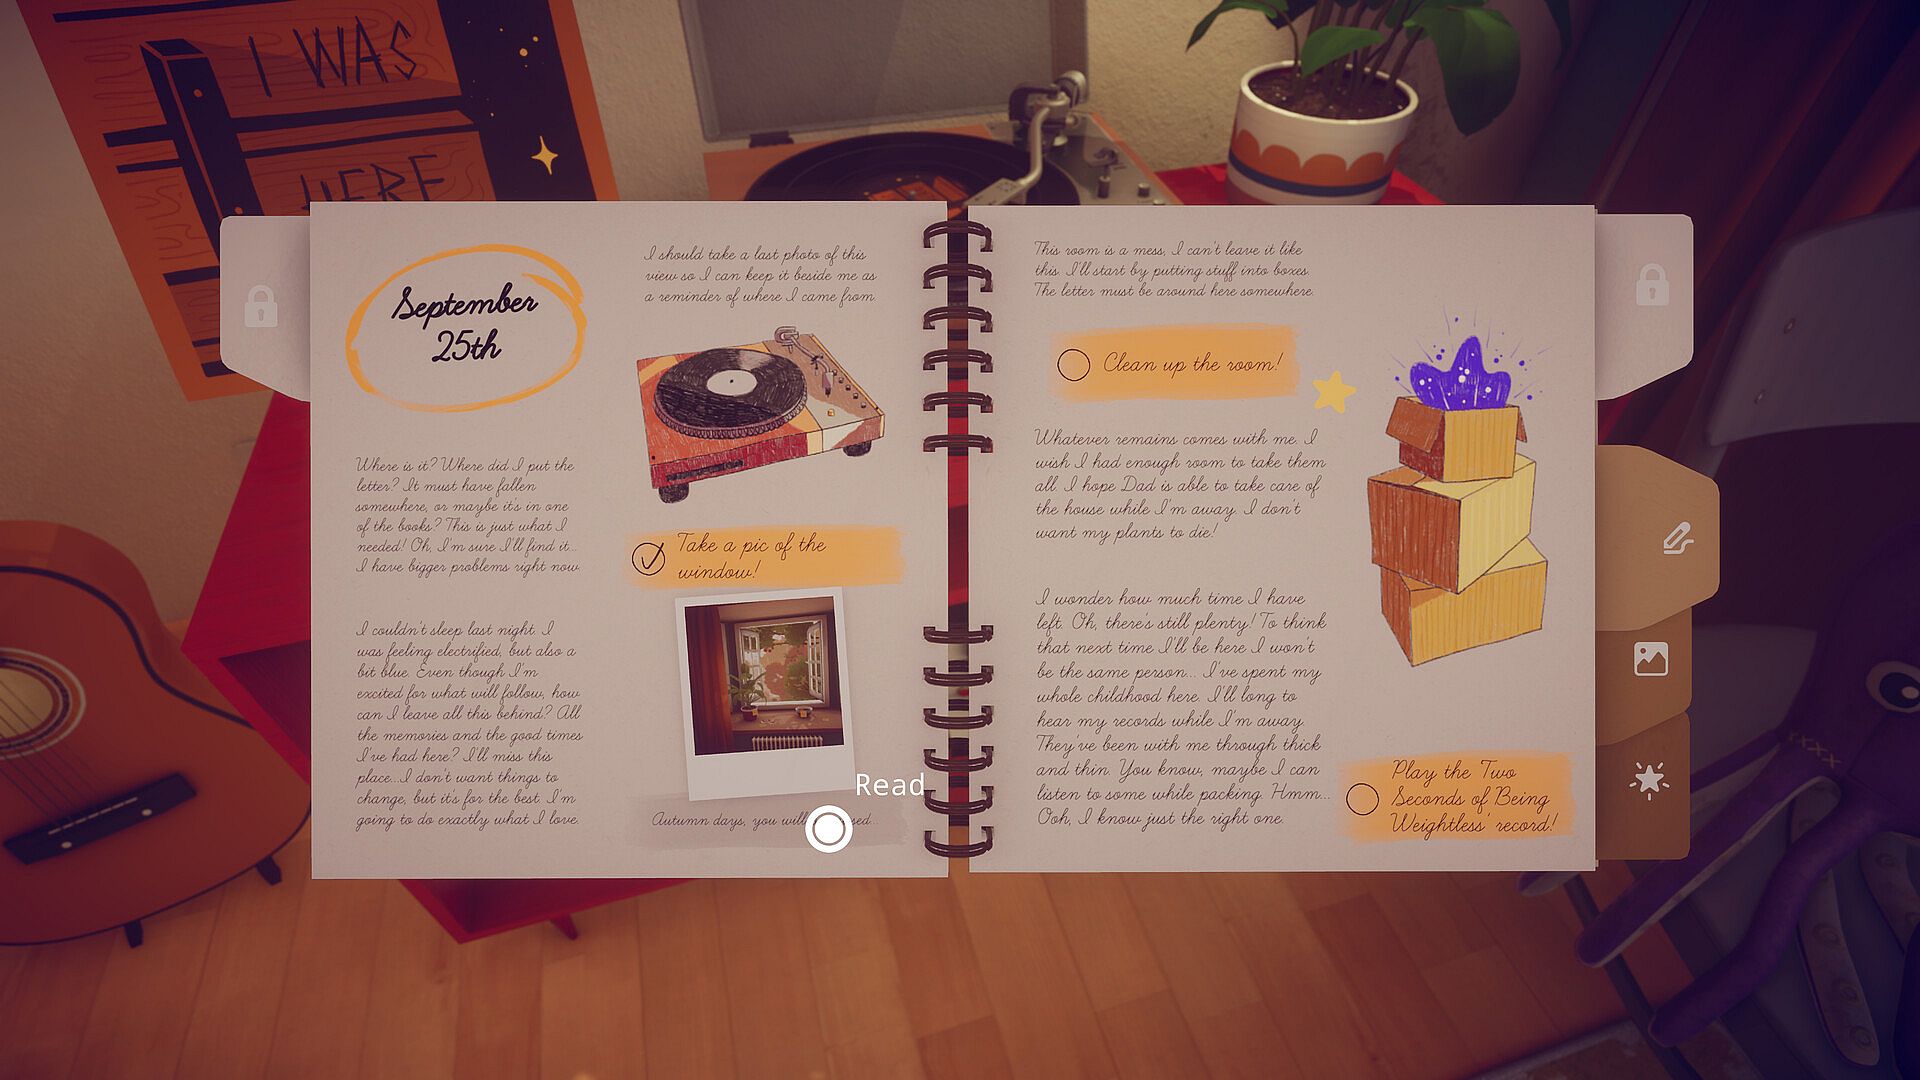 I WAS
HERE
September
25th
Where is it? Where did I put the
letter? It must have fallen
somewhere, or maybe it's in one
of the books? This is just what I
needed! Oh, I'm sure I'll find it...
I have bigger problems right now.
I couldn't sleep last night. I
was feeling electrified, but also a
bit blue. Even though I'm
excited for what will follow, how
can I leave all this behind? All
the memories and the good times
I've had here? I'll miss this
place...I don't want things to
change, but it's for the best. I'm
going to do exactly what I love.
I should take a last photo of this
view so I can keep it beside me as
a reminder of where I came from.
Take a pic of the
window!
Read
Autumn days, you will
This room is a mess, I can't leave it like
this. I'll start by putting stuff into boxes.
The letter must be around here somewhere.
Clean up the room!
Whatever remains comes with me. I
wish I had enough room to take them
all. I hope Dad is able to take care of
the house while I'm away. I don't
want my plants to die!
I wonder how much time I have
left. Oh, there's still plenty! To think
that next time I'll be here I won't
be the same person... I've spent my
whole childhood here. I'll long to
hear my records while I'm away.
They've been with me through thick
and thin. You know, maybe I can
listen to some while packing. Hmm...
Ooh, I know just the right one.
Play the 'Two
Seconds of Being
Weightless' record!